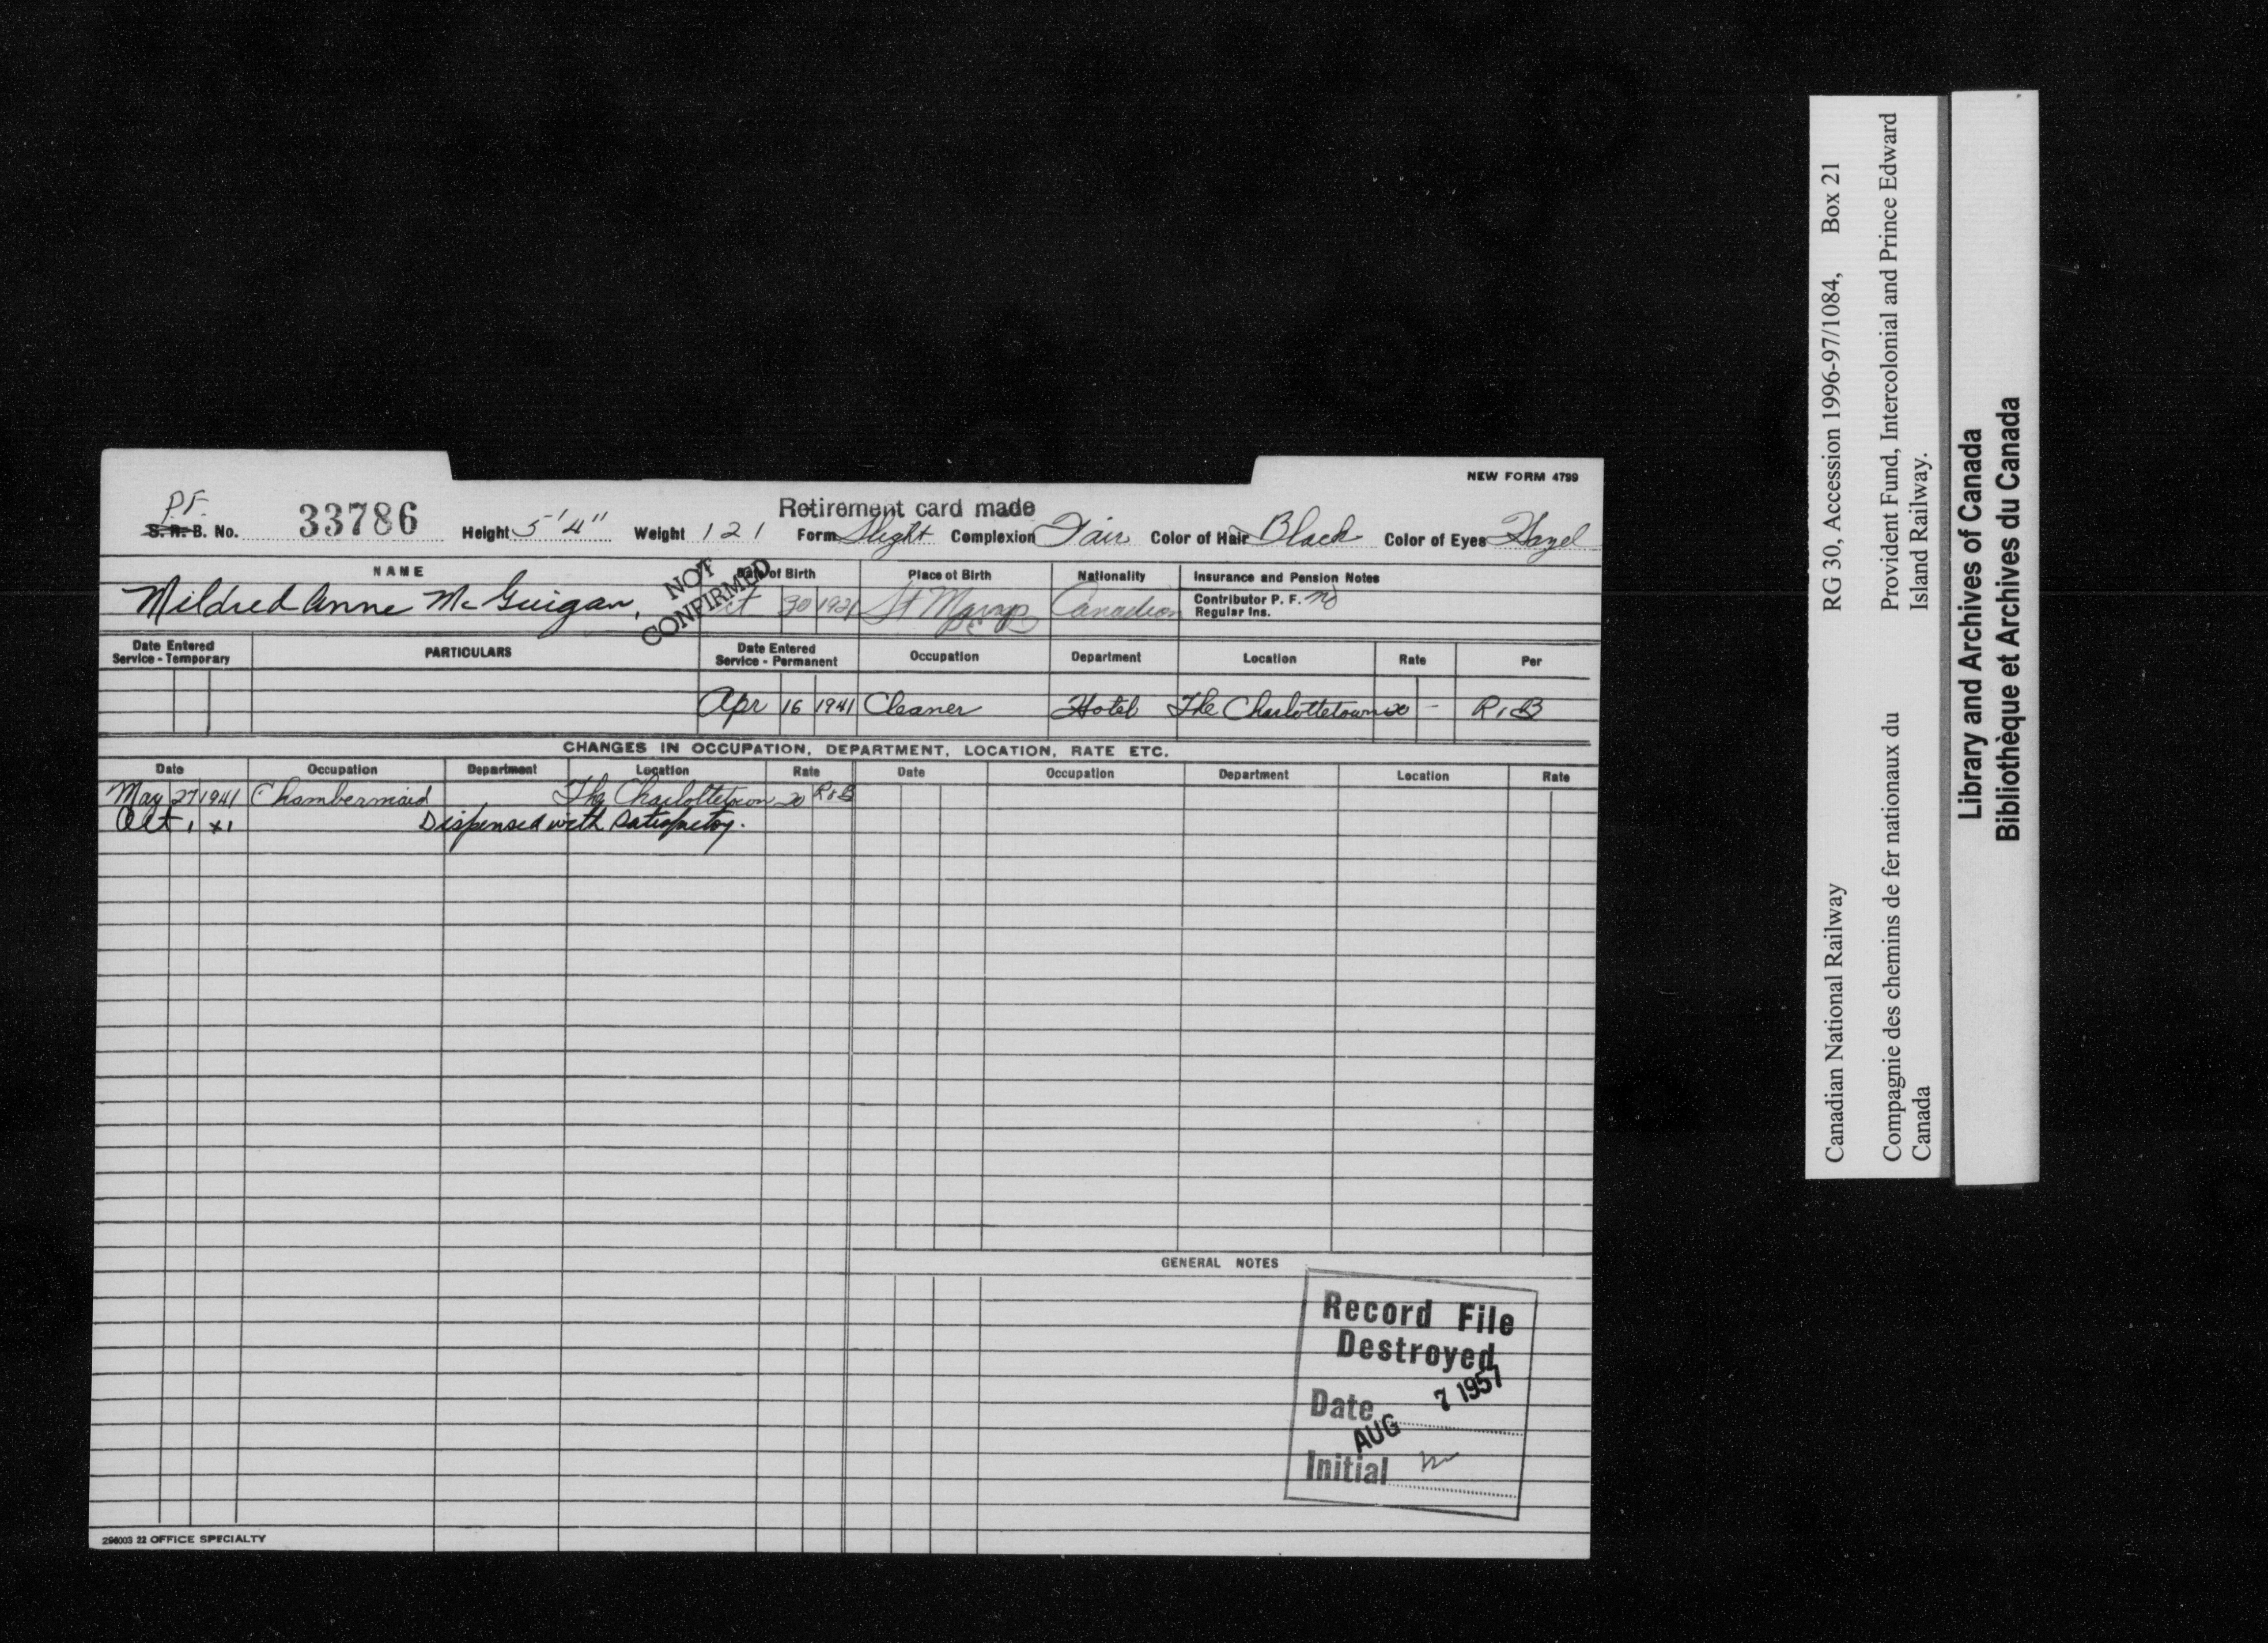 NEW FORM 4799
P.F.
Retirement card made
S. R. B. No. 33786 Height 5' 4" Weight 121 Form Slight Complexion Fair Color of Hair Black Color of Eyes Hazel
NAME Date of Birth Place of Birth Nationality Insurance and Pension Notes
NOT CONFIRMED
Mildred Anne McGuigan, Oct 30 1921 St Marys Canadian Contributor P. F. no
Regular Ins.
Date Entered Service - Temporary PARTICULARS Date Entered Service - Permanent Occupation Department Location Rate Per
Apr 16 1941 Cleaner Hotel The Charlottetown 20 - R & B
CHANGES IN OCCUPATION, DEPARTMENT, LOCATION, RATE ETC.
Date Occupation Department Location Rate Date Occupation Department Location Rate
May 27 1941 Chambermaid The Charlottetown 20 R & B
Oct 1 41 Dispensed with Satisfactory.
GENERAL NOTES
Record File
Destroyed
Date AUG 7 1957
Initial
296003 22 OFFICE SPECIALTY
Canadian National Railway RG 30, Accession 1996-97/1084, Box 21
Compagnie des chemins de fer nationaux du Provident Fund, Intercolonial and Prince Edward
Canada Island Railway.
Library and Archives of Canada
Bibliothèque et Archives du Canada